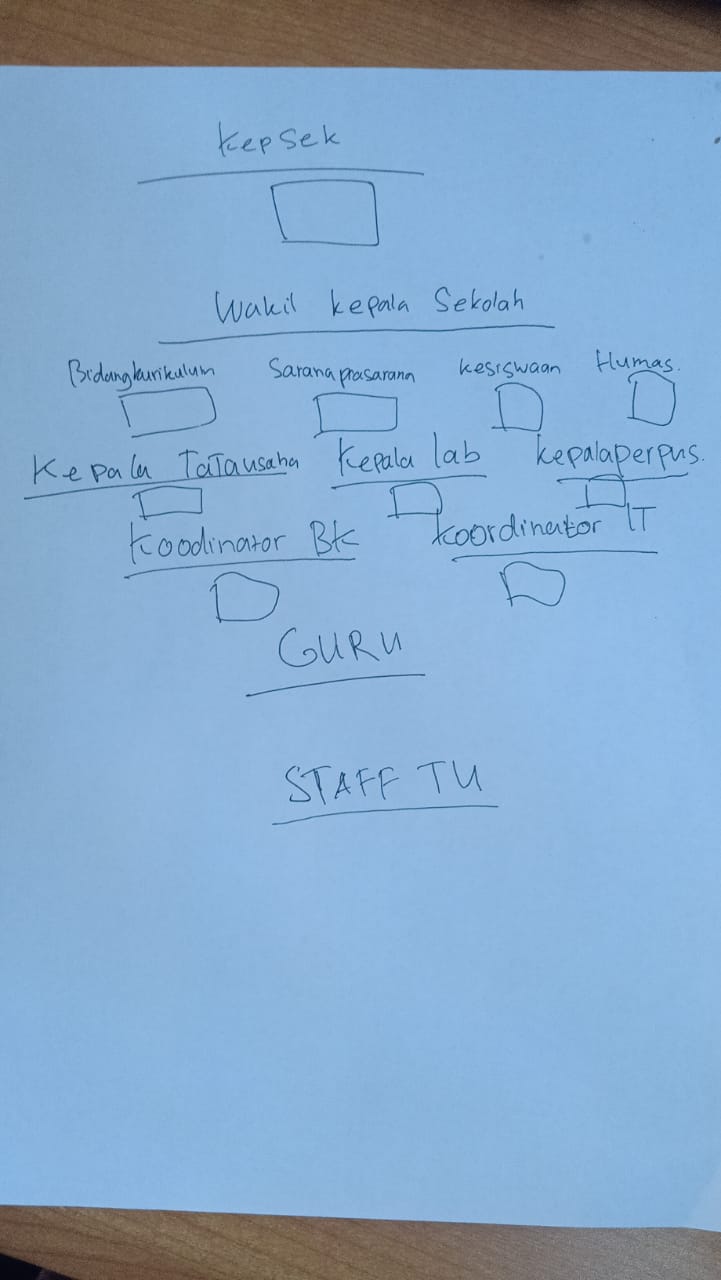 Kepsek
Wakil Kepala Sekolah
Bidang kurikulum Sarana prasarana Kesiswaan Humas.
Kepala Tatausaha Kepala lab Kepala perpus.
Koodinator BK Koordinator IT
GURU
STAFF TU